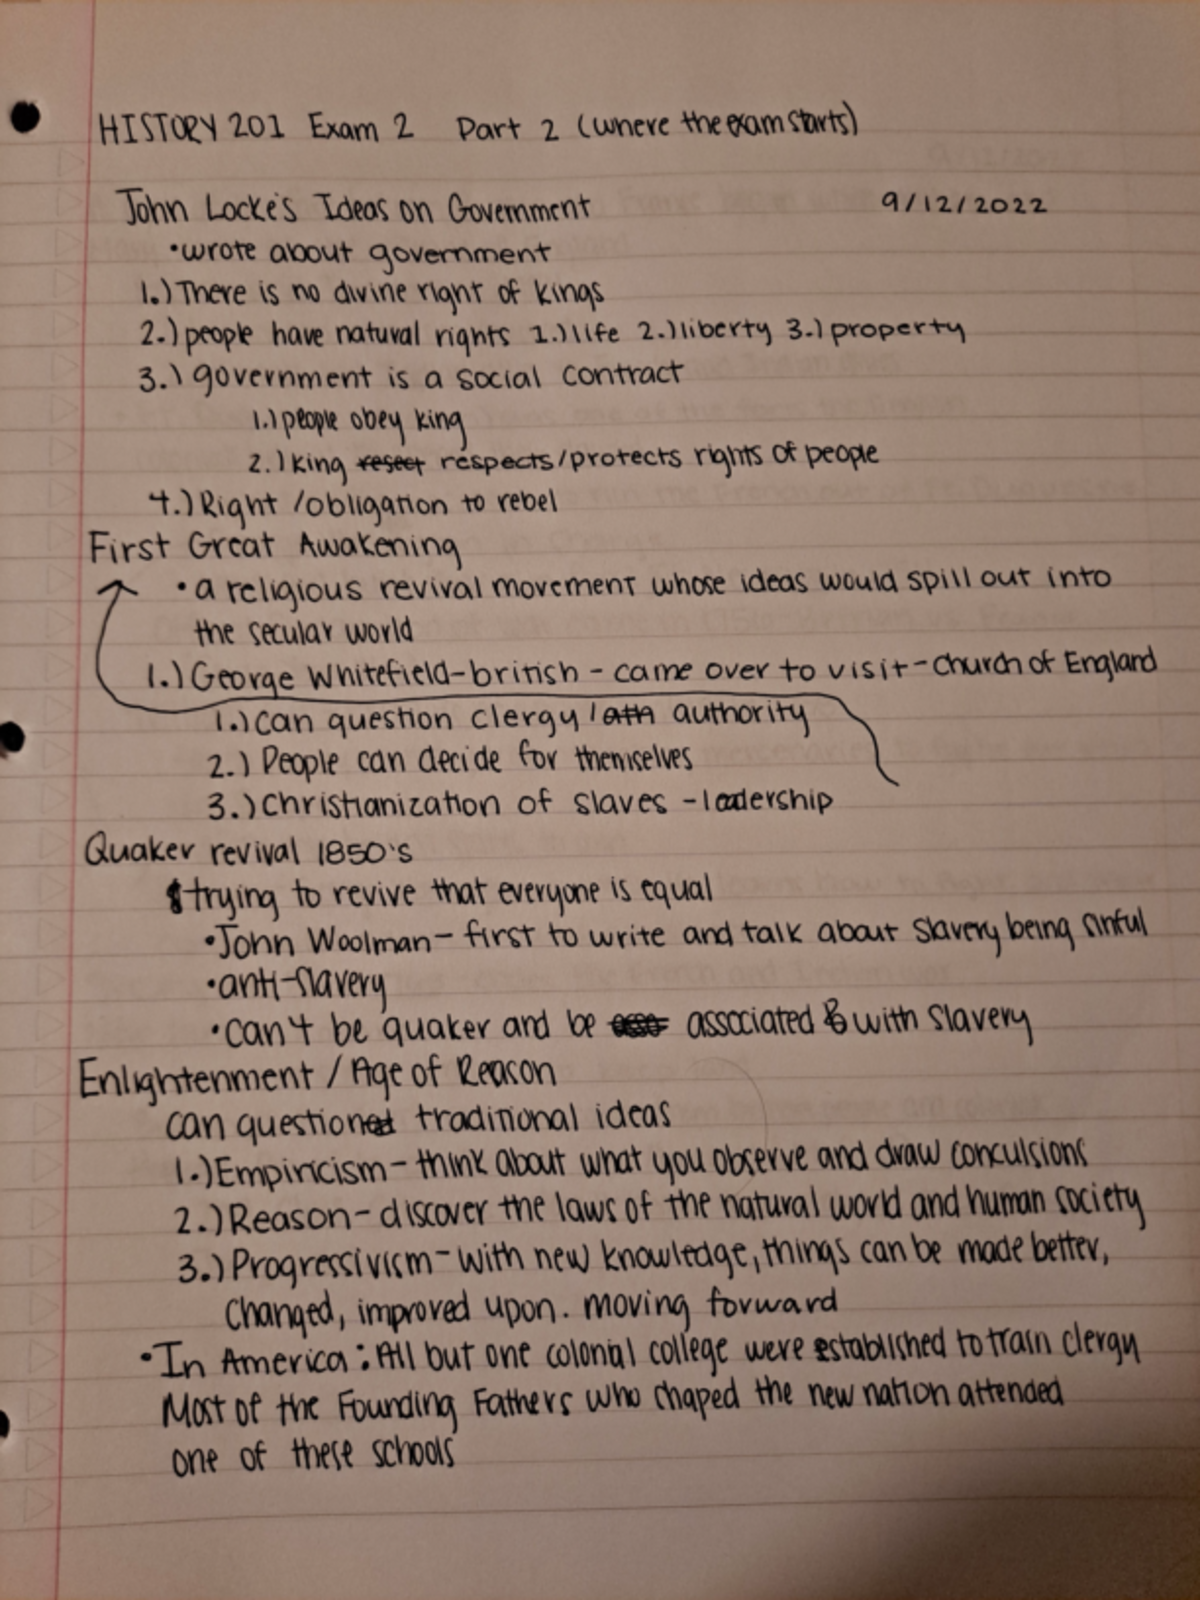 HISTORY 201 Exam 2 Part 2 (where the exam starts)
John Locke's Ideas on Government 9/12/2022
•wrote about government
1.) There is no divine right of kings
2.) people have natural rights 1.) life 2.) liberty 3.) property
3.) government is a social contract
1.) people obey king
2.) king resect respects/protects rights of people
4.) Right /obligation to rebel
First Great Awakening
• a religious revival movement whose ideas would spill out into
the secular world
1.) George Whitefield-british - came over to visit - church of England
1.) can question clergy /ath authority
2.) People can decide for themselves
3.) Christianization of slaves - leadership
Quaker revival 1850's
trying to revive that everyone is equal
•John Woolman - first to write and talk about slavery being sinful
•anti-slavery
•can't be quaker and be associated with slavery
Enlightenment / Age of Reason
can questioned traditional ideas
1.) Empiricism - think about what you observe and draw conculsions
2.) Reason - discover the laws of the natural world and human society
3.) Progressivism - with new knowledge, things can be made better,
changed, improved upon. moving forward
•In America: All but one colonial college were established to train clergy
Most of the Founding Fathers who shaped the new nation attended
one of these schools